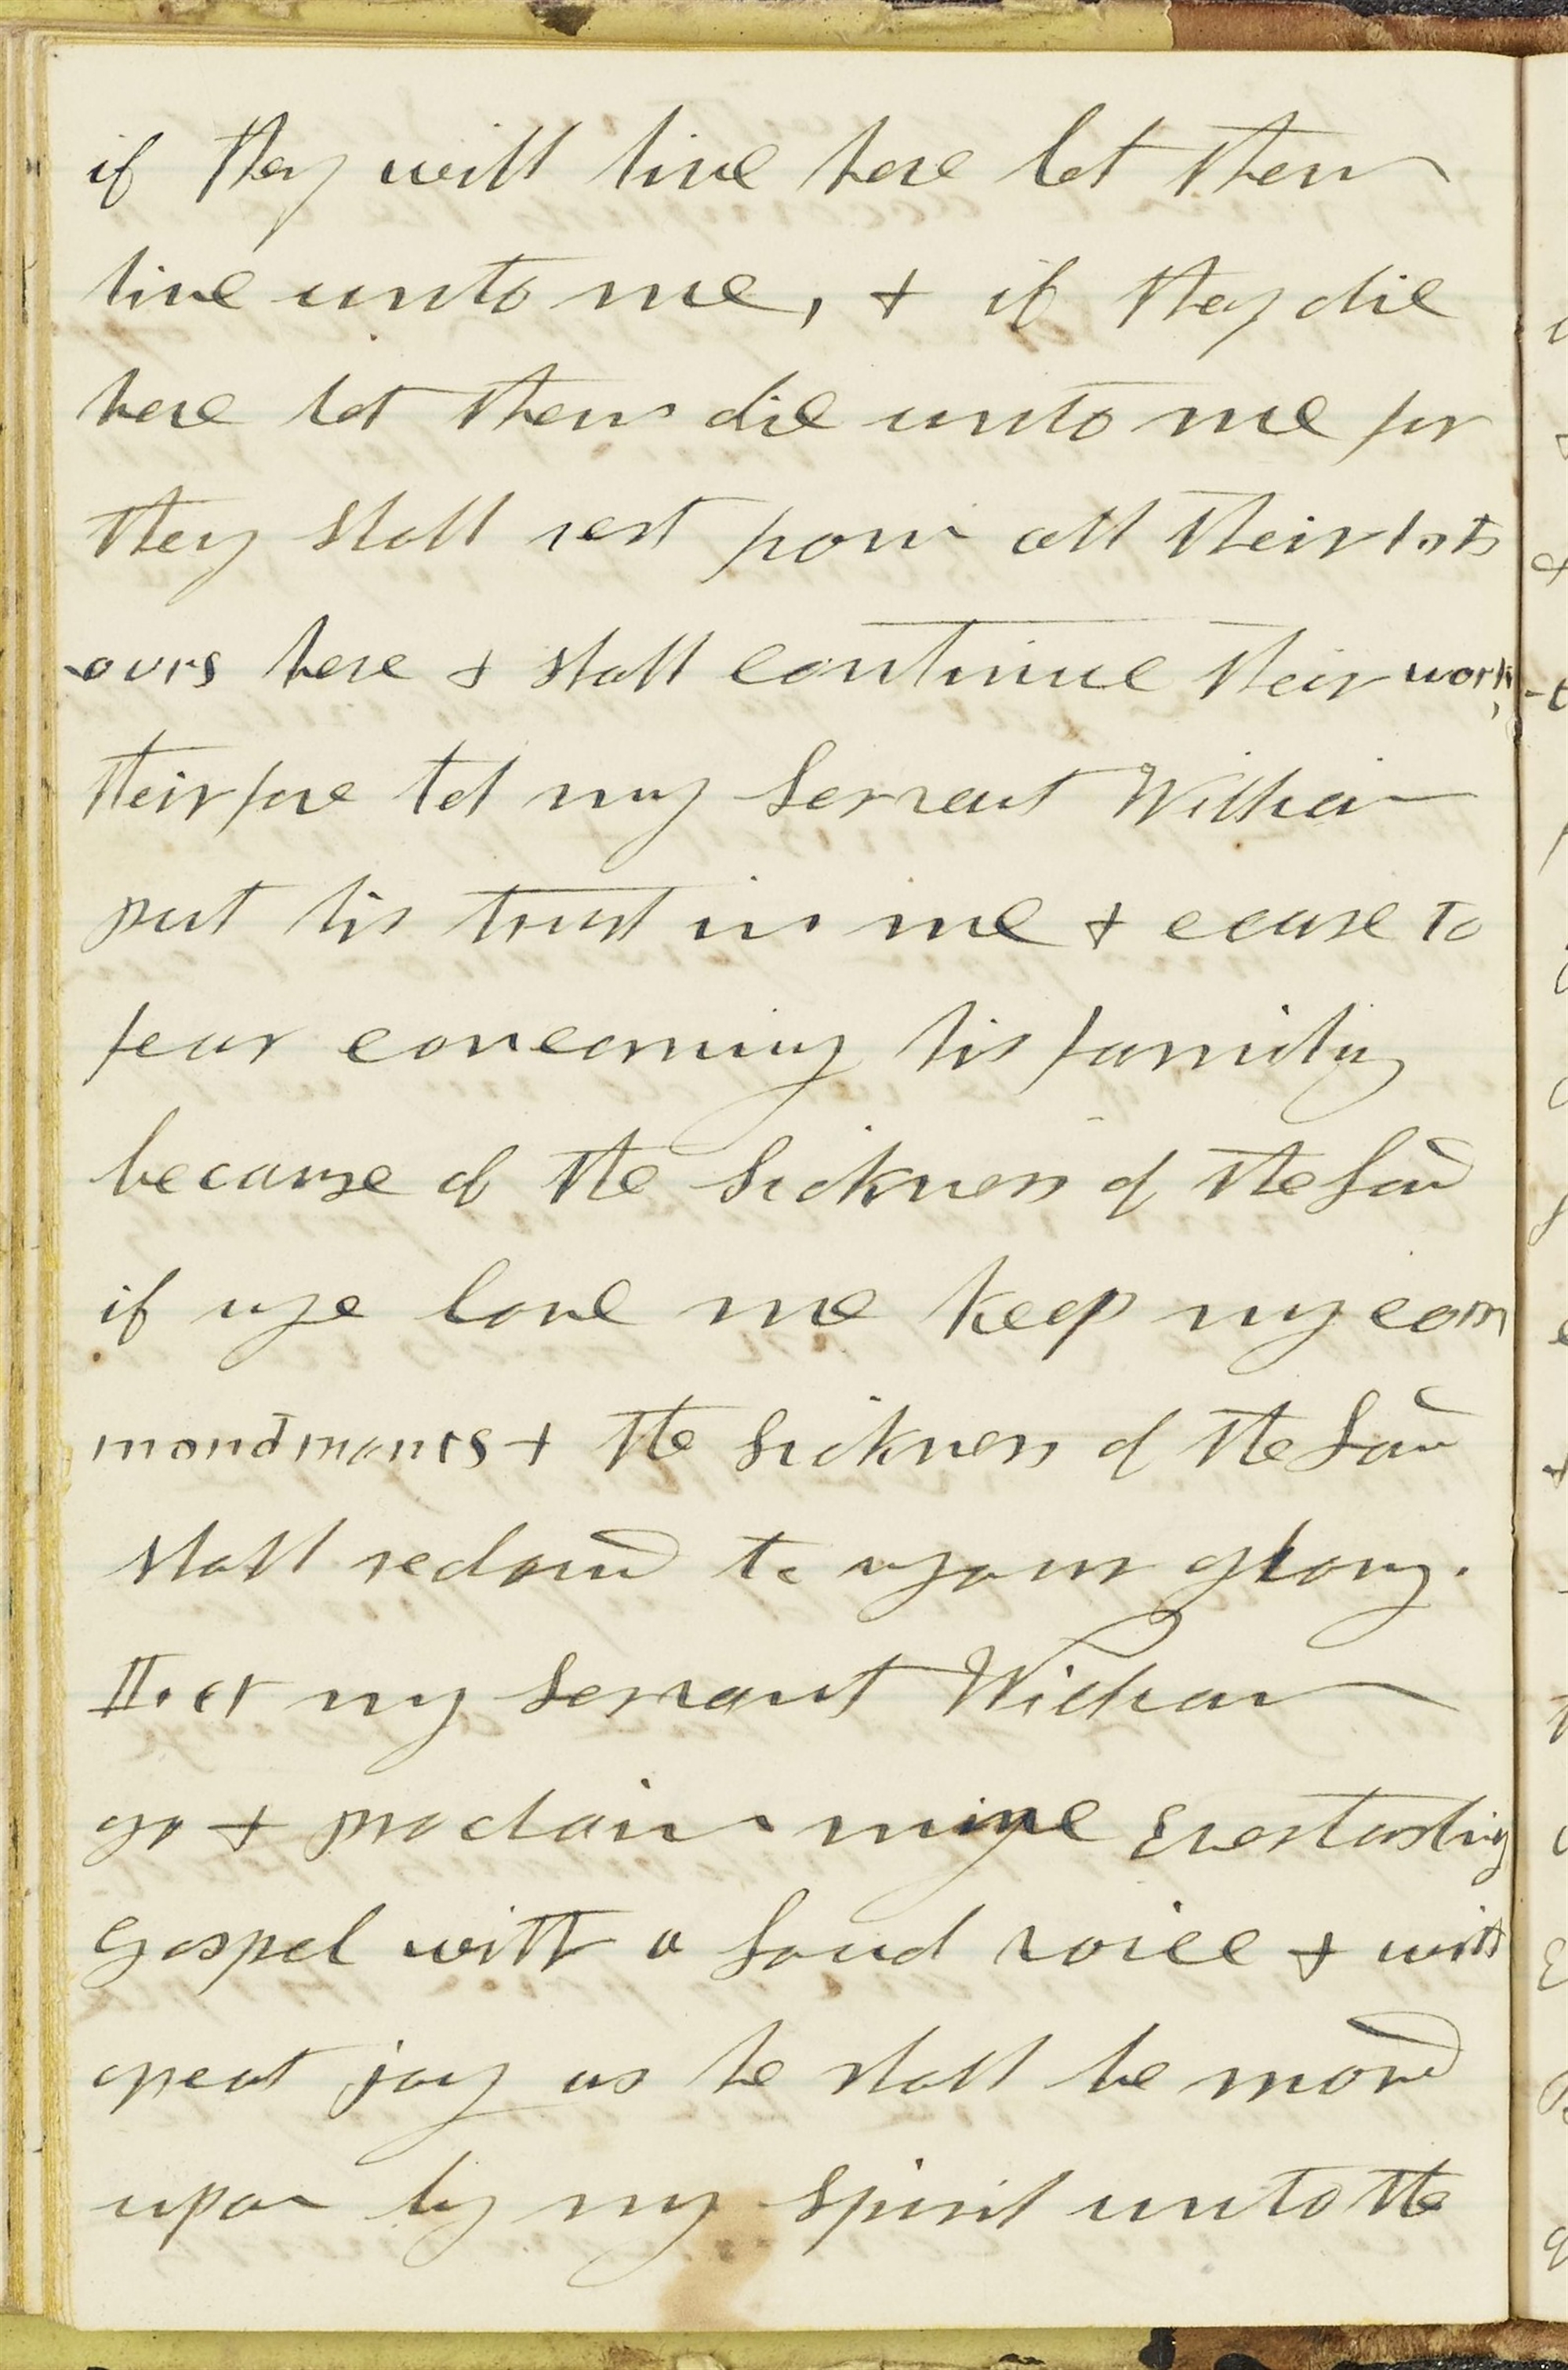 if they will live here let them
live unto me, & if they die
here let them die unto me for
they shall rest from all their lab
-ours here & shall continue their works,
theirfore let my Servant William
put his trust in me & cease to
fear concerning his family
because of the Sickness of the Land
if ye love me keep my com
mandments & the Sickness of the Land
shall redound to your glory.
II. let my Servant William
go & proclaim mine Everlasting
Gospel with a Loud voice & with
great joy as he shall be moved
upon by my Spirit unto the